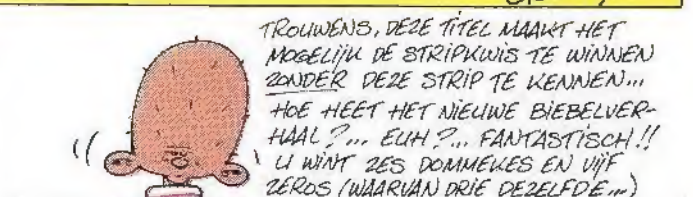 TROUWENS, DEZE TITEL MAAKT HET
MOGELIJK DE STRIPKWIS TE WINNEN
ZONDER DEZE STRIP TE KENNEN...
HOE HEET HET NIEUWE BIEBELVER-
HAAL?... EUH?... FANTASTISCH!!
U WINT ZES DOMMEKES EN VIJF
ZEROS (WAARVAN DRIE DEZELFDE...)